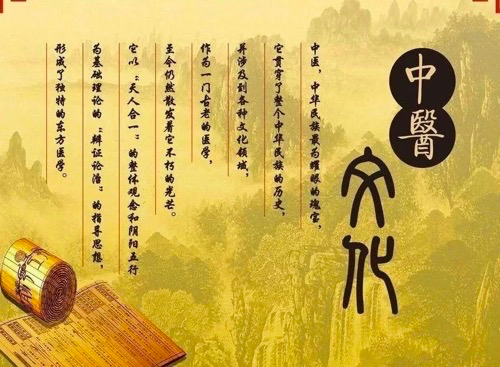 中醫
文化
中医,中华民族最为耀眼的瑰宝,
它贯穿了整个中华民族的历史,
并涉及到各种文化领域,
作为一门古老的医学,
至今仍然散发着它不朽的光芒。
它以“天人合一”的整体观念和阴阳五行
为基础理论的“辨证论治”的指导思想,
形成了独特的东方医学。